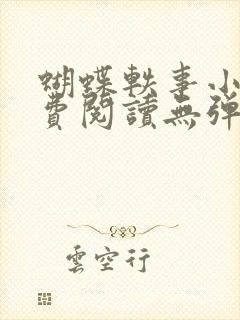 蝴蝶軼事小
費閱讀無彈
雲空行